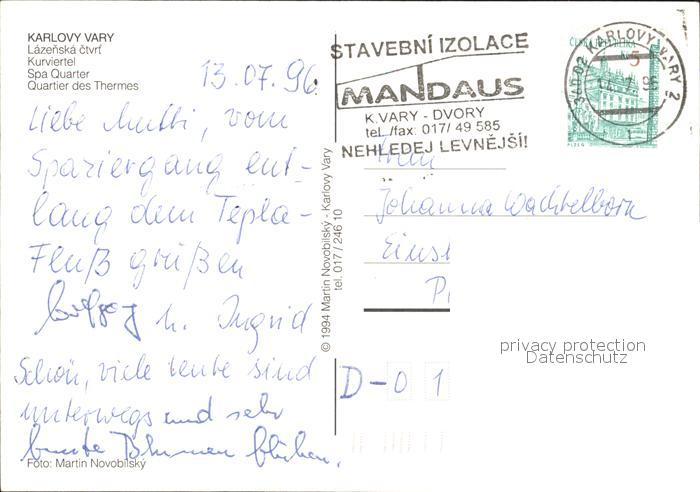 KARLOVY VARY
Lázeňská čtvrť
Kurviertel
Spa Quarter
Quartier des Thermes
13.07.96
Liebe Mutti, vom
Spaziergang ent-
lang dem Tepla-
Fluß grüßen
u. Ingrid
Schön, viele Leute sind
unterwegs und sehr
bunte Blumen blühen.
Foto: Martin Novobilský
© 1994 Martin Novobilský - Karlovy Vary
tel. 017 / 246 10
STAVEBNÍ IZOLACE
MANDAUS
K.VARY - DVORY
tel./fax: 017/ 49 585
NEHLEDEJ LEVNĚJŠÍ!
KARLOVY VARY 2
5
PLZEŇ
Johanna Wachtelborn
D-01
privacy protection
Datenschutz